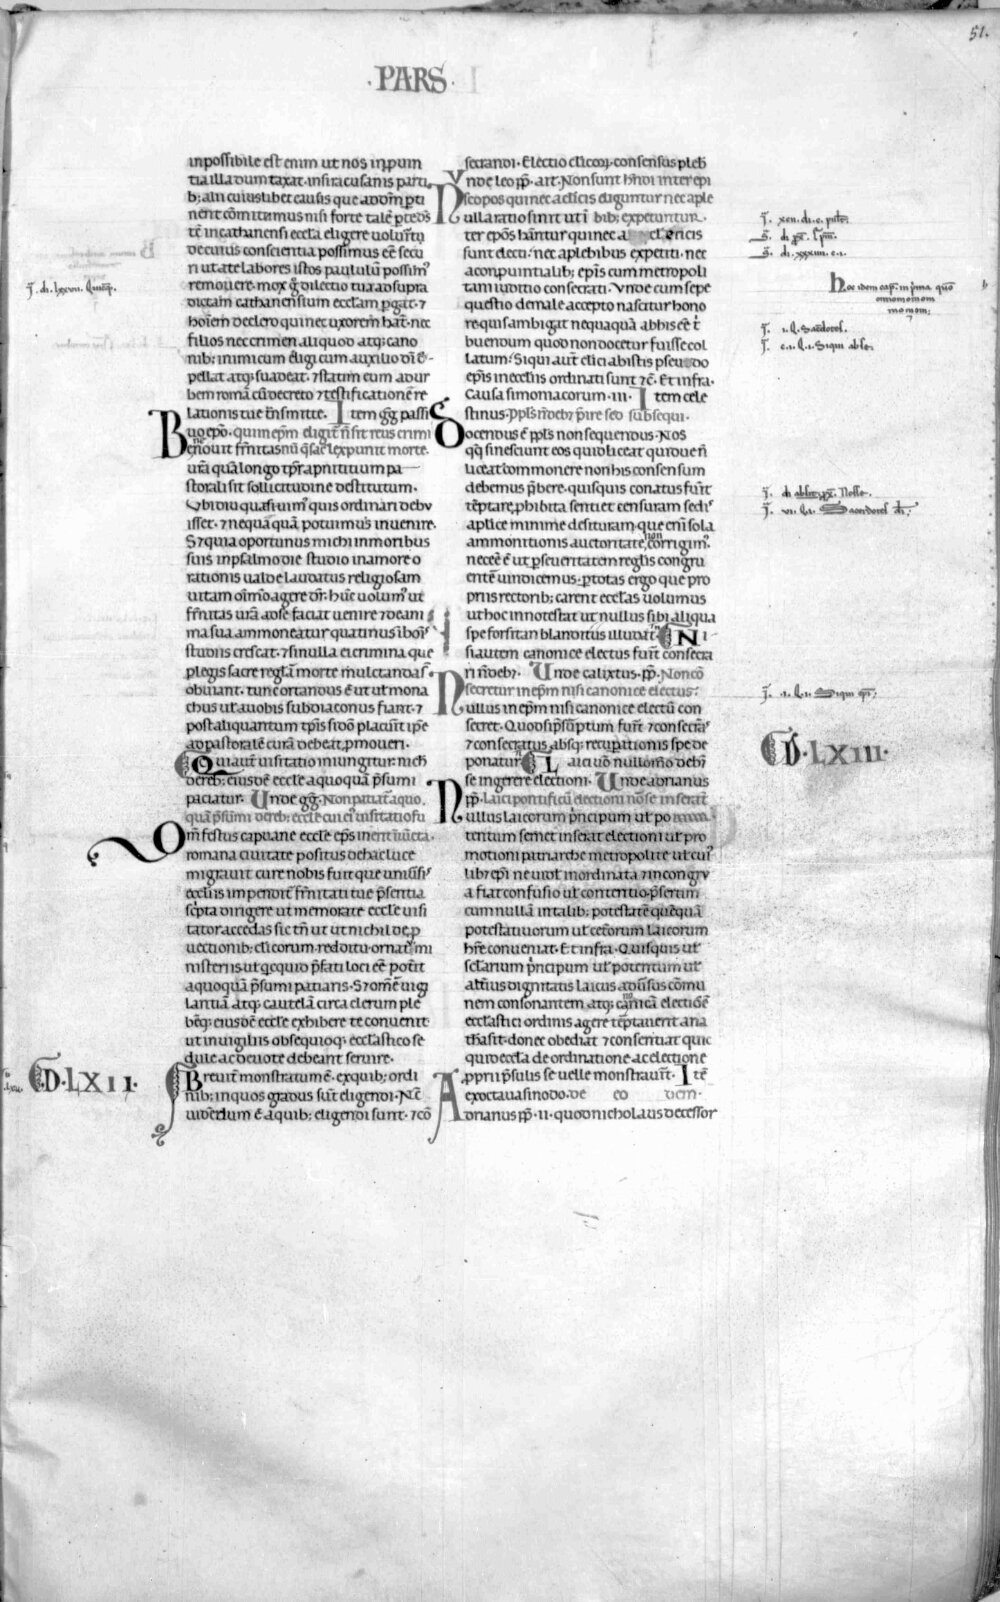 51.
·PARS· I
inpossibile est enim ut nos inpuin
tia illa dum taxat·insiracusanis parti
b; aln cuiuslibet causis que addm̄ pti
nent cōmitamus nisi forte talē p̱ teds
tē incathanensi eccl̄a eligere uoluīt
de cuius conscientia possimus eē secu
ri ut ate labores istos paululū possim᷒
remouere· mox q̄ dilectio tua adsupra
dictam cathanensium eccl̄am p̱gat·⁊
hoīem declero qui nec uxorem hat̄·nec
filios nec crimen aliquod atq; cano
nib; inimicum eligi cum auxilio dī ē
pellat atq; suadeat·⁊statim cum adur
bem romā cū decreto ⁊testificationē re
lationis tue tn̄smitte· Item gg̅ passi
uo ep̄o· qui in ep̄m eligit̄ n̄ sit reus crimi
Benouit fr̄nitas nū q̄ sae lex punit morte·
urā quā longo tp̄r apn̄tititium pa
storali sit sollicitudine destitutum·
Vbi diu quasiuim᷒ quis ordinari debu
isset·⁊ nequāquā potuimus inuenire·
S₇ quia oportunus michi inmoribus
suis inpsalmodie studio inamore o
rationis ualde laudatus religiosam
uitam oīmō agere dr̄· hūc uolum᷒ ut
fr̄nitas urā adse faciat uenire ⁊deani
ma sua ammoneatur quatinus ī bois
studiis crescat·⁊sinulla ei crimina que
p̱ legis sacre reglām morte mulctandas̄
obuiant· tunc ortandus ē ut ut mona
chus ut auobis subdiaconus fiant·⁊
post aliquantum tp̄is si dō placuīt ip̄e
adpastoralē curā debeat p̱moueri·
Qui aūt uisitatio iniungitur· nich
dereb; eiusdē eccl̄e a quoquā p̄sumi
paciatur· Unde gg̅· Non patiat̄ aquo,
quā p̄sumi dereb; eccl̄e cui ei᷒ uisitatio fu
Dom̄ festus capuane eccl̄e ep̄s inent iniūcta·
romana ciuitate positus dehac luce
migrauit cure nobis fuit que uniūsis
eccl̄iis impendit̄ fr̄nitati tue p̄sentia
sc̄pta dirigere ut memorate eccl̄e uisi
tator accedas sic tn̄ ut ut nichil de p̱
uectionib; cl̄icorum·redditu·ornatu᷒mi
nisteriis ut q̄cquid p̄fati loci eē potīt
aquoquā p̄sumi patiaris·S₇omē uigi
lantiā atq; cautelā circa clerum ple
bēq; eiusdē eccl̄e exhibere te conuenit·
ut inuigiliis obsequioq; eccl̄astico se
dule ac deuote debeant seruire·
Breuit̄ monstratum ē· ex quib; ordi
nib; in quos gradus sūt eligendi·Nc̄
uidendum ē a quib; eligendi sunt·⁊cō
D·LXII·
secrandi· Electio cl̄icoꝝ·consensus pleb̄
Vnde leo pp̄·ait·Non sunt hn̄di inter ep̄i
scopos qui nec a cl̄icis eliguntur nec aple
Nulla ratio sinit ut ī bib; expetuntur·
ter ep̄os hān̄tur qui nec a clericis
sunt electi·nec aplebibus expetiti·nec
a conpuintialib; ep̄is cum metropoli
tani iuditio consecrati· Vnde cum sepe
questio de male accepto nascitur hono
re quis ambigat nequaquā abhis eē t̄
buendum quod non docetur fuisse col
latum· Siqui aut̄ cl̄ici abistis pseudo
ep̄is in eccl̄iis ordinati sunt ⁊c̄· Et infra·
Causa simomacorum·iii· Item cele
stinus·Ppl̄s n̄ deb₇ p̄ire sed subsequi·
Docendus ē ppl̄s non sequendus·Nos
qq̄ si nesciunt eos quid liceat quid ue n̄
liceat commonere non his consensum
debemus p̄bere· quisquis conatus fuīt
tēptare p̱hibita sentiet censuram sedis
aplice minime defituram·que enī sola
ammonitionis auctoritate non corrigim᷒
necē ē ut p̱ seueritatem reglis congru
entē uindicemus·p̱ totas ergo que pro
priis rectorib; carent eccl̄as uolumus
ut hoc innotescat ut nullus sibi aliqua
spe forsitan blandit̄us illudat̄· Ni
si autem canonice electus fuīt consecra
ri n̄ deb₇· Unde calixtus·pp̄·Non cō
secretur in ep̄m nisi canonice electus·
Nullus in ep̄m nisi canonice electū con
secret·Quod si p̄sūptum fuīt ⁊consecrās
⁊consecratus absq; recup̱ationis spe de
ponatur· Laici uō nullo mō deb₇
se ingerere electioni· Unde adrianus
pp̄·Laici pontificū electioni nō se inserāt
Nullus laicorum p̄ncipum ut po
tentum semet inserat electioni ut pro
motioni patriarche metropolite ut cui᷒
lib₇ ep̄i ne uidl̄ inordinata ⁊incongru
a fiat confusio ut contentio·p̄sertim
cum nullā in talib; potestatē quēquā
potestatiuorum ut ceīorum laicorum
hr̄e conueniat·Et infra·Quisquis ut
scl̄arium p̄ncipum ut potentum ut
alt̄ius dignitatis laicus adūsus cōmu
nem consonantem atq; canicā electiōē
eccl̄astici ordinis agere tēptauerit ana
thā sit·donec obediat ⁊consentiat quic
quid eccl̄a de ordinatione ac electione
p̱prii p̄sulis se uelle monstrauīt· Itē
Aex octaua sinodo·de eo dem·
drianus pp̄·ii·quod nicholaus decessor
D·LXIII·